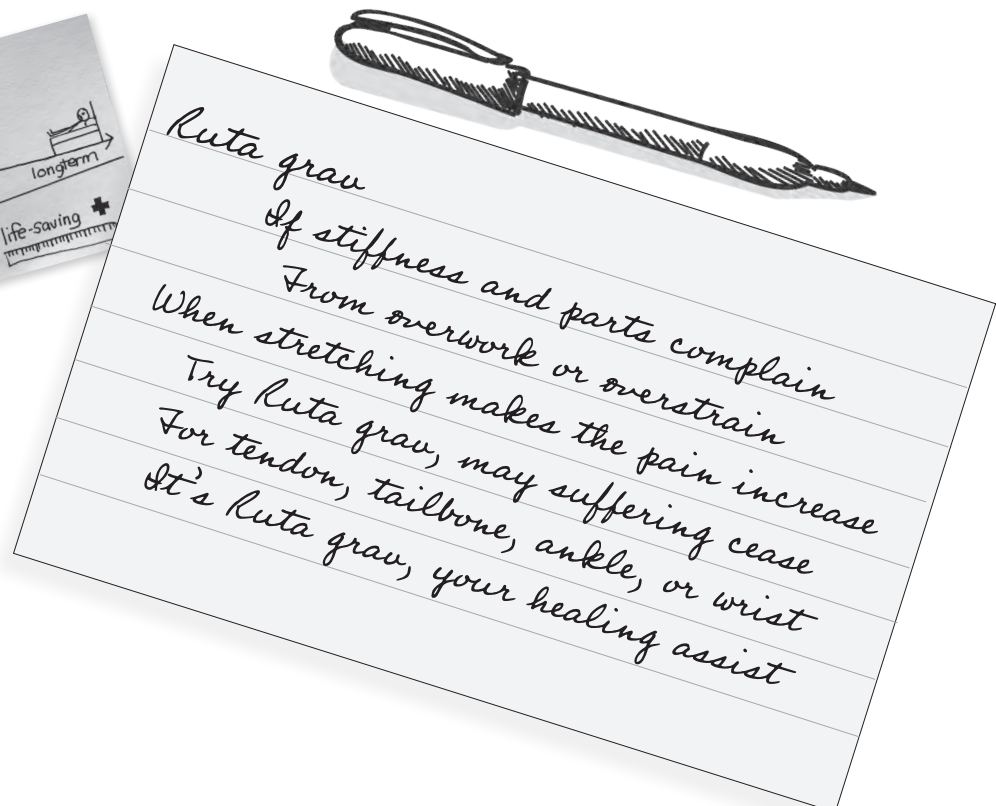 longterm
life-saving
Ruta grav
If stiffness and parts complain
From overwork or overstrain
When stretching makes the pain increase
Try Ruta grav, may suffering cease
For tendon, tailbone, ankle, or wrist
It's Ruta grav, your healing assist